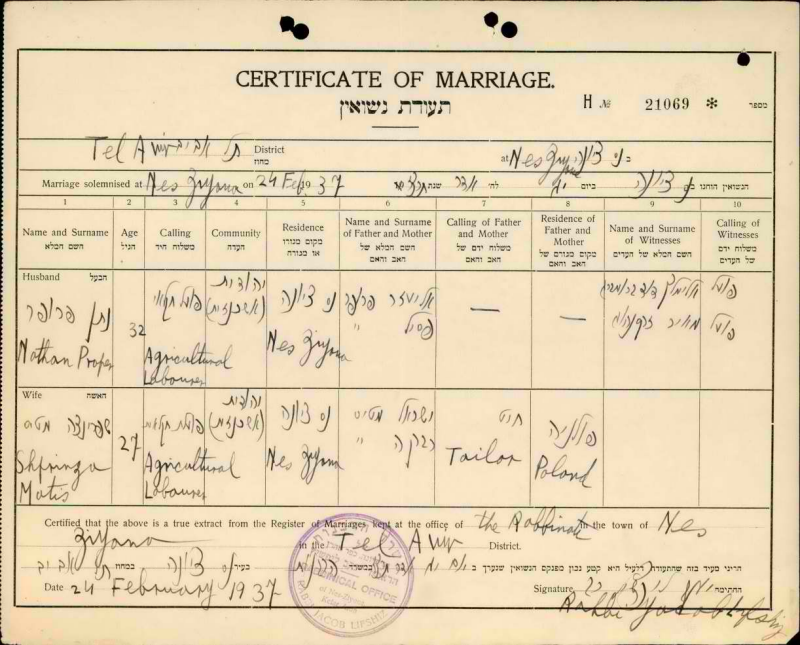 CERTIFICATE OF MARRIAGE.
תעודת נשואין
H № 21069 * מספר
Tel Aviv תל אביב District מחוז at Nes Ziyona נס ציונה ב
Marriage solemnised at Nes Ziyona on 24 Feb. 1937 לח׳ אדר שנת ביום הנשואין הוחגו ב נס ציונה
1 2 3 4 5 6 7 8 9 10
Name and Surname Age Calling Community Residence Name and Surname of Father and Mother Calling of Father and Mother Residence of Father and Mother Name and Surname of Witnesses Calling of Witnesses
השם המלא הגיל משלוח היד העדה מקום מגוריו או מגוריה השם המלא של האב והאם משלוח ידם של האב והאם מקום מגורם של האב והאם השם המלא של העדים משלוח ידם של העדים
Husband הבעל
נתן פרופר
Nathan Proper
32
פועל חקלאי
Agricultural Labourer
יהודית (אשכנזית)
נס ציונה
Nes Ziyona
אליעזר פרופר
פסיל "
—
—
מאיר
פועל
פועל
Wife האשה
שפרינצה מטיס
Shprinza Matis
27
פועלת חקלאית
Agricultural Labourer
יהודית (אשכנזית)
נס ציונה
Nes Ziyona
ישראל מטיס
רבקה "
חייט
Tailor
פולניה
Poland
Certified that the above is a true extract from the Register of Marriages kept at the office of the Rabbinate in the town of Nes
Ziyona in the Tel Aviv District.
הריני מעיד בזה שהתעודה דלעיל היא קטע נכון מפנקס הנשואין שנערך ב במשרד הרבנות בעיר נס ציונה במחוז תל אביב
Date 24 February 1937 Signature החתימה
Rabbi Jacob Lipshiz
RABBINICAL OFFICE
RABBI JACOB LIPSHIZ